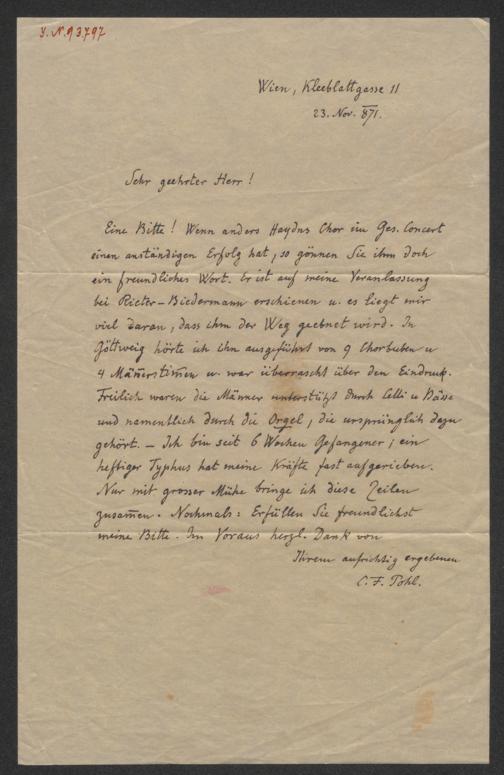 J.N. 93797
Wien, Kleeblattgasse 11
23. Nov. 871.
Sehr geehrter Herr!
Eine Bitte! Wenn anders Haydns Chor im Ges. Concert
einen anständigen Erfolg hat, so gönnen Sie ihm doch
ein freundliches Wort. Er ist auf meine Veranlassung
bei Rieter-Biedermann erschienen u. es liegt mir
viel daran, dass ihm der Weg geebnet wird. In
Göttweig hörte ich ihn ausgeführt von 9 Chorbuben u
4 Männerstimmen u. war überrascht über den Eindruck.
Freilich waren die Männer unterstützt durch Celli u Bässe
und namentlich durch die Orgel, die ursprünglich dazu
gehört. – Ich bin seit 6 Wochen Gefangener; ein
heftiger Typhus hat meine Kräfte fast aufgerieben.
Nur mit grosser Mühe bringe ich diese Zeilen
zusam̅en. Nochmals: Erfüllen Sie freundlichst
meine Bitte. Im Voraus herzl. Dank von
Ihrem aufrichtig ergebenen
C. F. Pohl.